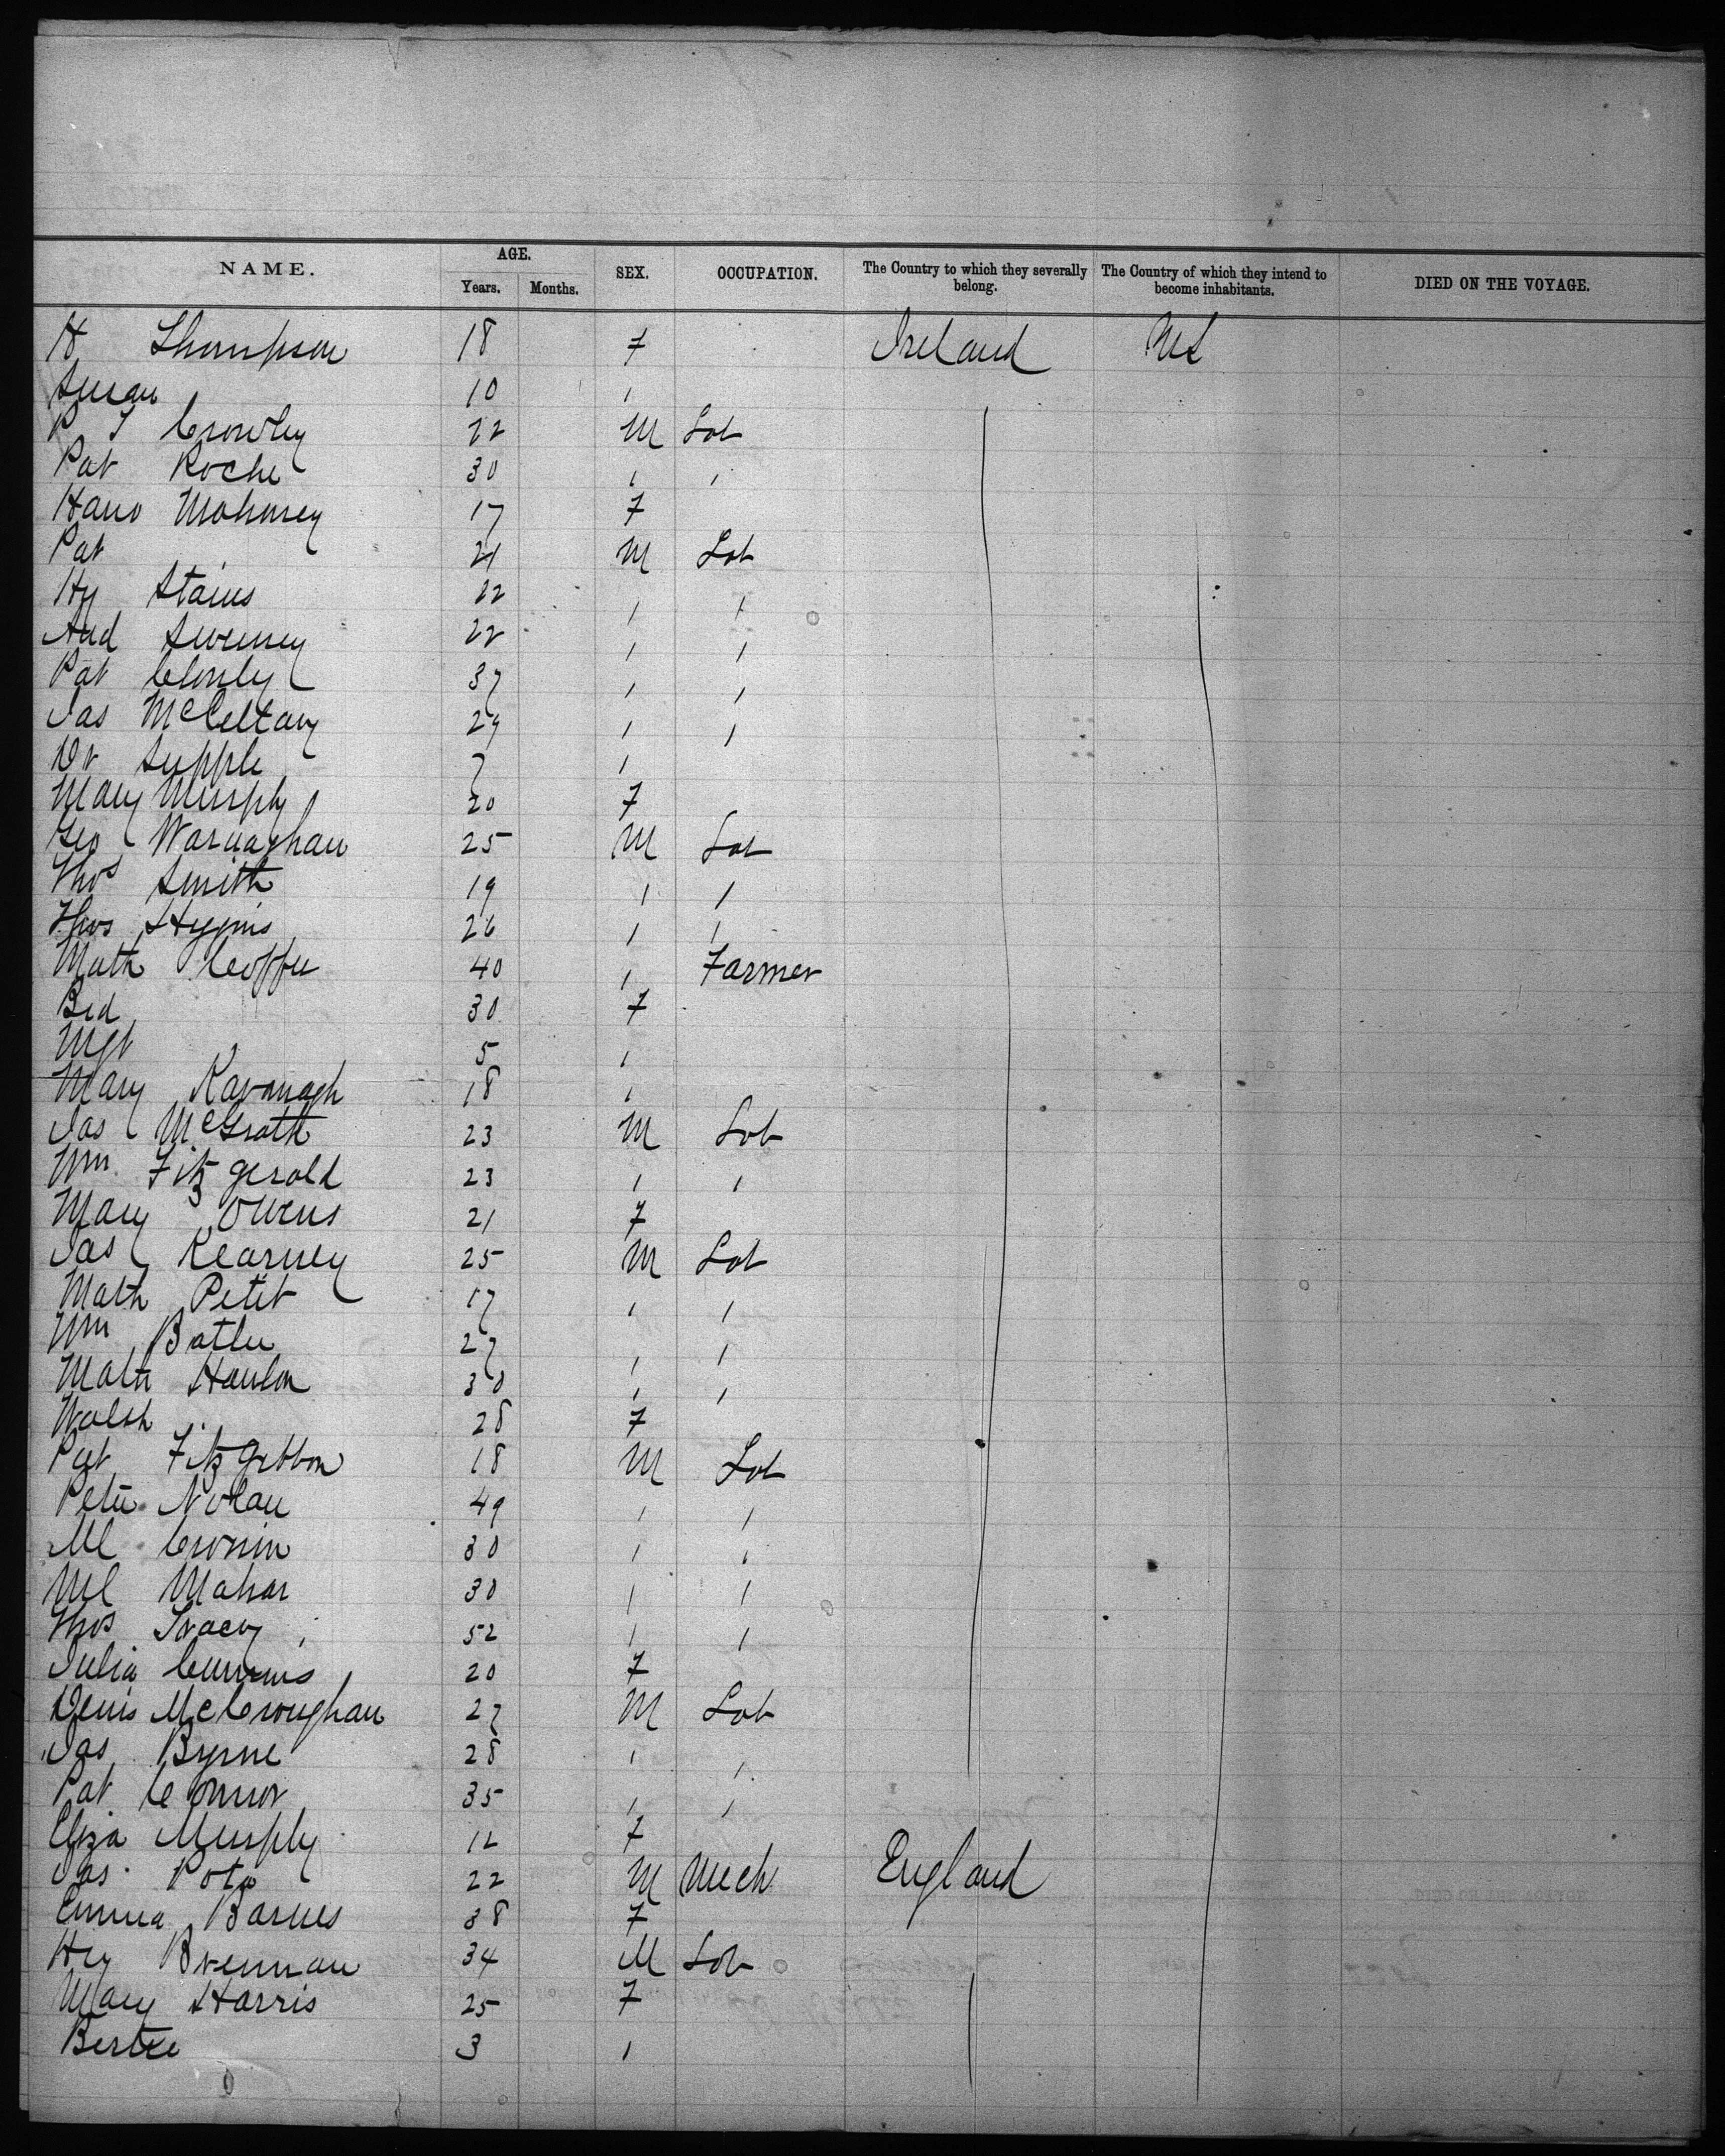 NAME. AGE. Years. Months. SEX. OCCUPATION. The Country to which they severally belong. The Country of which they intend to become inhabitants. DIED ON THE VOYAGE.
H Thompson 18 F Ireland US
Susan 10 "
P J Crowley 22 M Lab
Pat Roche 30 " "
Hano Mahoney 17 F
Pat 21 M Lab
Hy Stains 22 " "
And Sweeney 22 " "
Pat Conly 37 " "
Jas 29 " "
Dr Supple 7 "
Mary Murphy 20 F
Geo Warnaghan 25 M Lab
Thos Smith 19 " "
Thos Higgins 26 " "
Math Coffee 40 " Farmer
Brd 30 F
Mgt 5 "
Mary Kavanagh 18 "
Jas McGrath 23 M Lab
Wm Fitzgerald 23 " "
Mary Owens 21 F
Jas Kearney 25 M Lab
Math Petit 17 " "
Wm Butler 27 " "
Math Hanlon 30 " "
Walsh 28 F
Pat Fitzgibbon 18 M Lab
Peter Nolan 49 " "
Ml Cronin 30 " "
Ml Mahar 30 " "
Thos Tracey 52 " "
Julia Cummins 20 F
Denis McCroughan 27 M Lab
Jas Byrne 28 " "
Pat Connor 35 " "
Eliza Murphy 12 F
Jas 22 M Mech England
Emma Barnes 38 F
Hy Brennan 34 M Lab
Mary Harris 25 F
Bertie 3 "